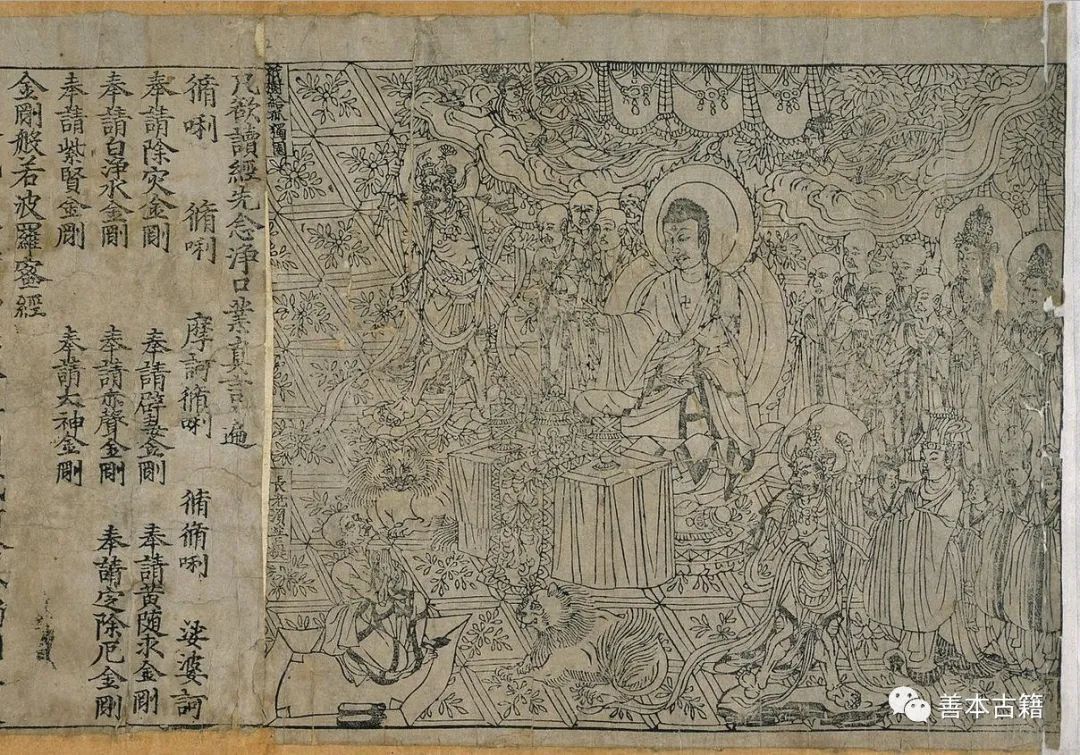 祇樹給孤獨園
長老須菩提
凡欲讀經先念淨口業真言一遍
脩唎 脩唎 摩訶脩唎 脩脩唎 娑婆訶
奉請除灾金剛 奉請辟毒金剛 奉請黃随求金剛
奉請白淨水金剛 奉請赤聲金剛 奉請定除厄金剛
奉請紫賢金剛 奉請大神金剛
金剛般若波羅蜜經
善本古籍